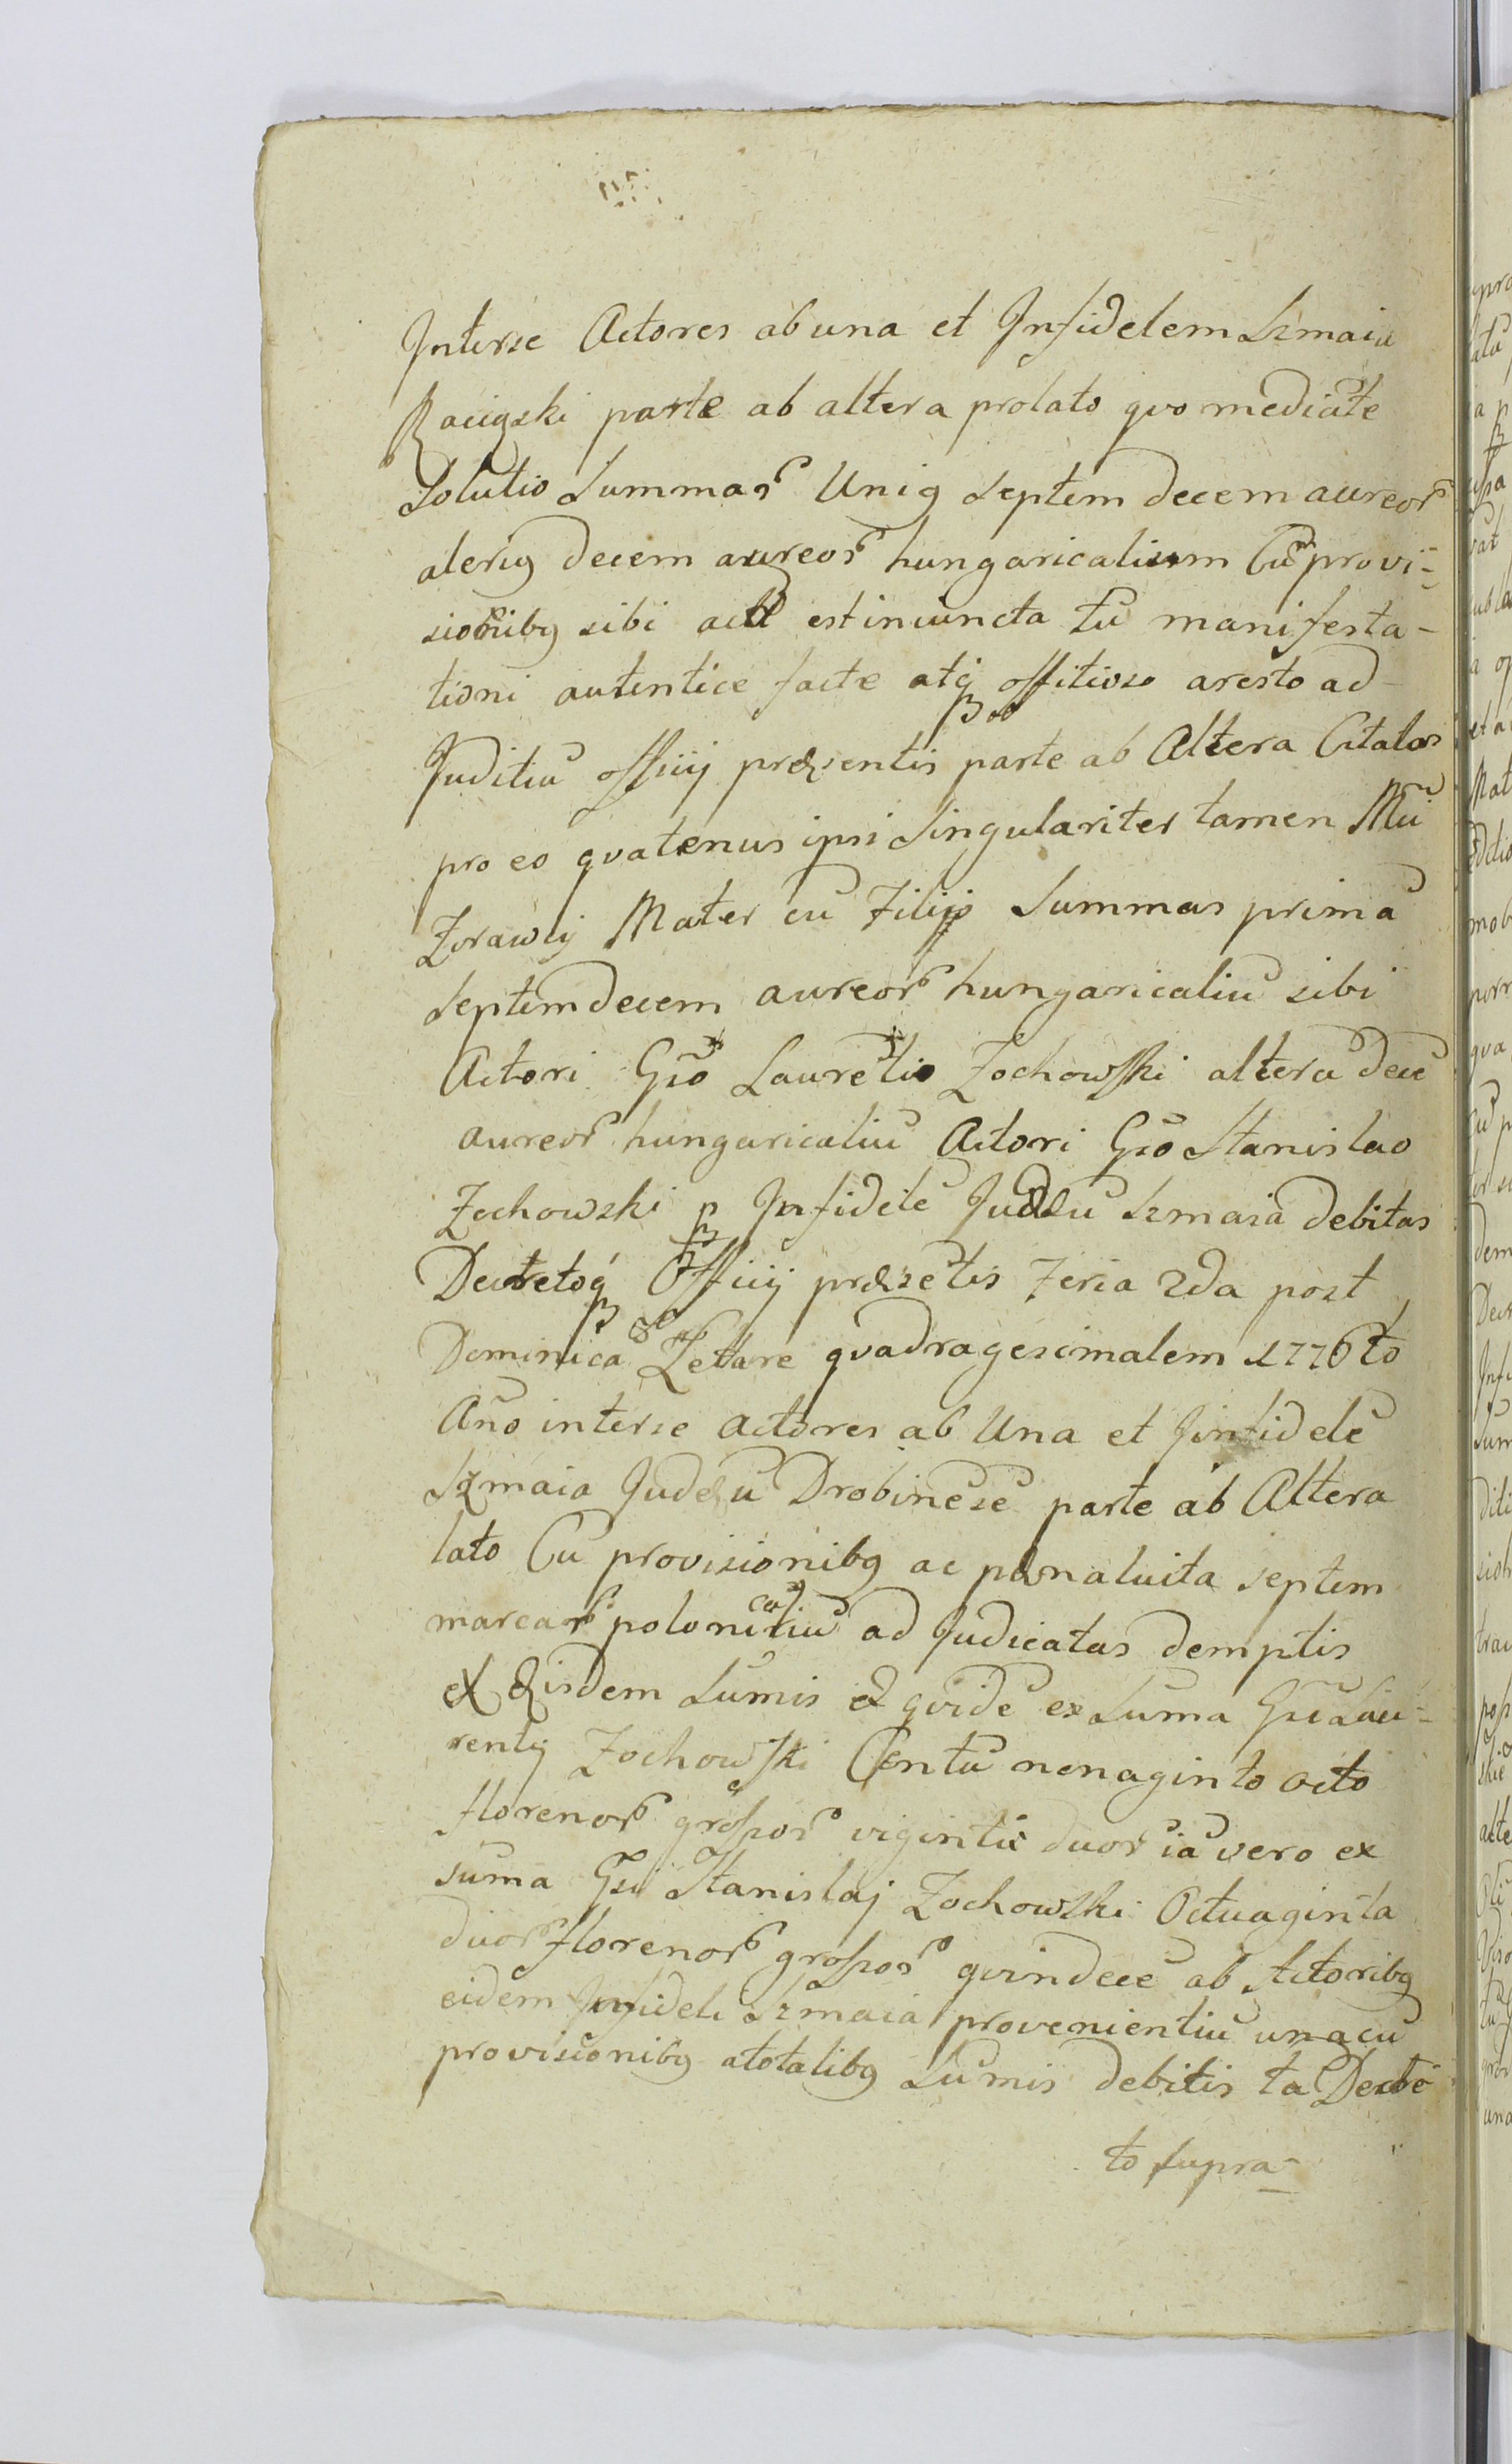 Interse Actores ab una et Infidelem Szmaia
Raciąski parte ab altera prolato qvo mediãte
Solutio Summar Uniq Septem decem aureor
aleriq decem aureor hungaricalium Cũ provi-
sionibq sibi est iniuncta tũ manifesta-
tioni autentice facte atq offitioso aresto ad
Juditiũ offiiij præsentis parte ab Altera Citator
pro eo qvatenus ipsi Singulariter tamen
Zorawij Mater cũ Filijs Summas primã
Septemdecem aureor hungaricaliũ sibi
Actori Gso Laurẽtio Zochowski alterã decẽ
aureor hungaricaliũ Actori Gso Stanislao
Zochowski p Infidelẽ Judæũ Szmaiã debitas
Decretoq Officij præsẽtis Feria 2da post
Dominicã Lætare qvadragesimalem 1776to
Año interse actores ab Una et Jnfidelẽ
Szmaia Judæũ Drobinẽsẽ parte ab Altera
lato Cũ provisionibq ac pæna luita septem
marcar polonicaliũ ad Judicatas demptis
ex Eisdem Sumis et qvidẽ ex Suma Gsi Lau-
rentij Zochowski Centũ nonaginto octo
florenor grossor viginti duor iã vero ex
suma Gsi Stanislaj Zochowski Octuaginta
duor florenor grossor qvindecẽ ab Actoribq
eidem Infideli Szmaia provenientiũ unacũ
provisionibq atotalibq Sumis debitis ta Decre
to supra-